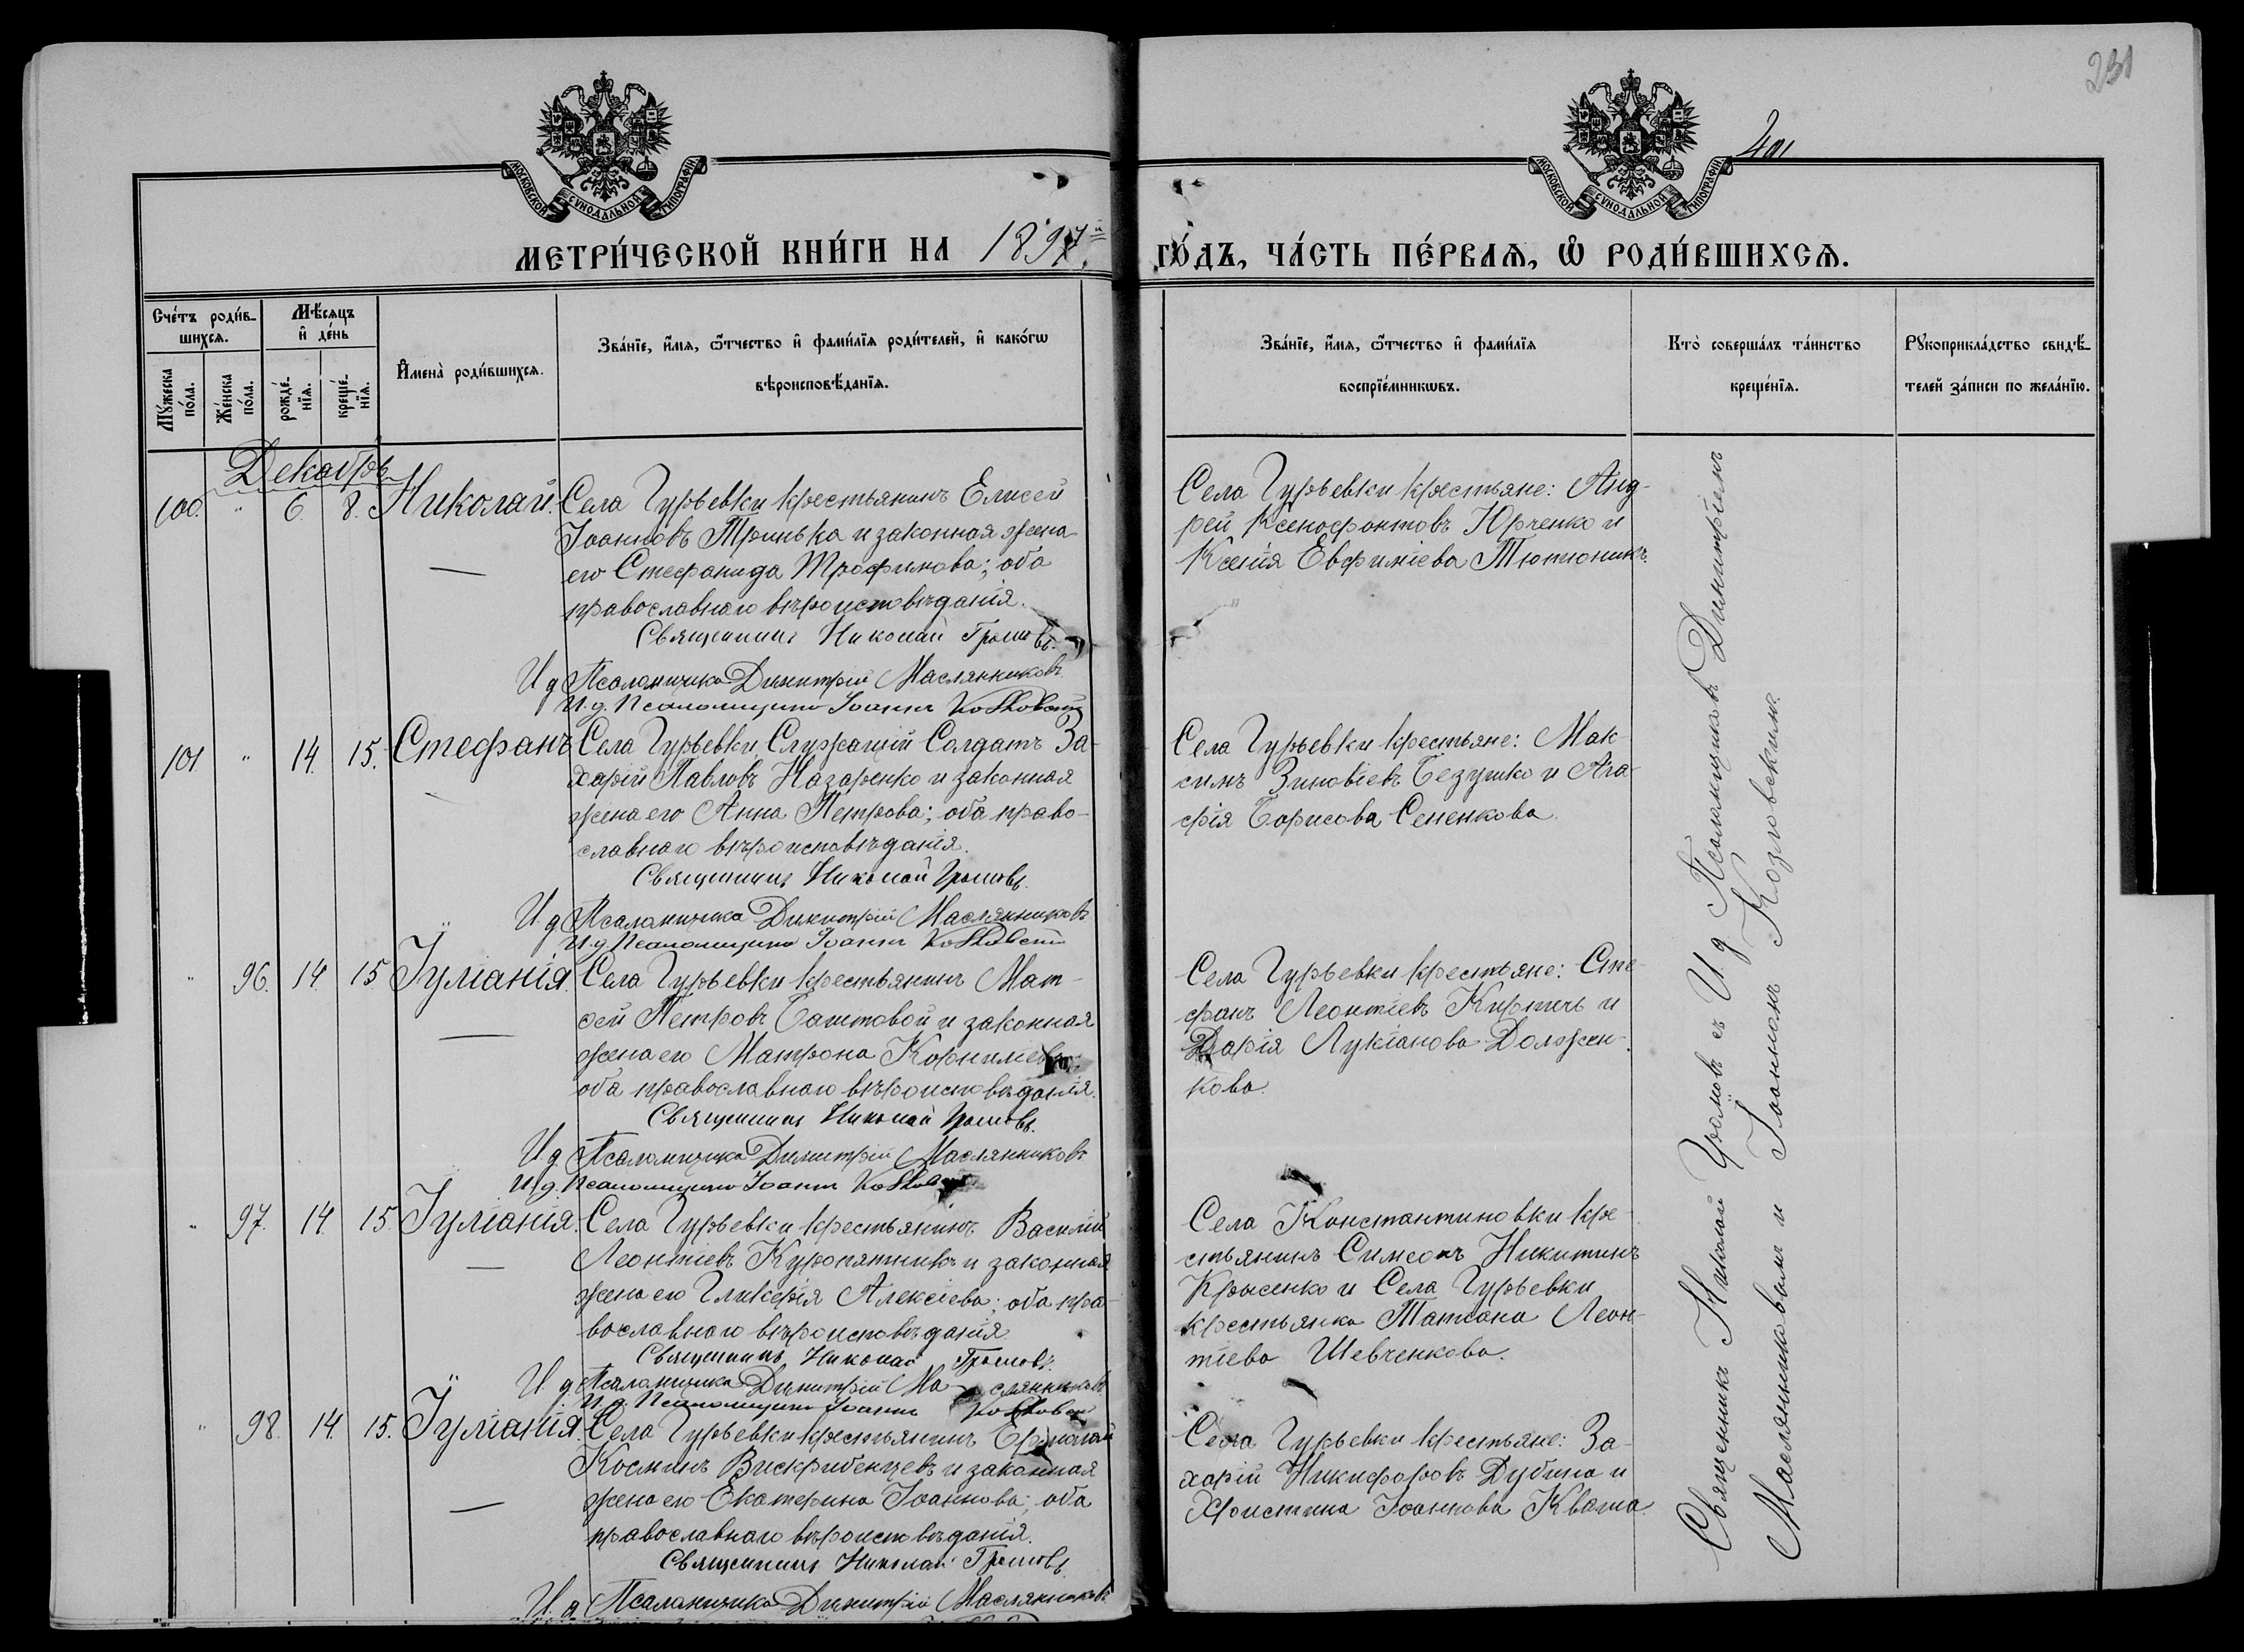 231
401
МОСКОВСКОЙ СУНОДАЛЬНОЙ ТИПОГРАФІИ
МОСКОВСКОЙ СУНОДАЛЬНОЙ ТИПОГРАФІИ
МЕТРИ́ЧЕСКОЙ КНИ́ГИ НА 1897й
ГО́ДЪ, ЧА́СТЬ ПЕ́РВАѦ, Ѡ҆ РОДИ́ВШИХСѦ.
Сче́тъ роди́вшихсѧ.
Мꙋ́жеска по́ла.
Же́нска по́ла.
Мѣ́сѧцъ и҆ де́нь
рожде́нїѧ.
креще́нїѧ.
И҆мена̀ роди́вшихсѧ.
Зва́нїе, и҆́мѧ, ѻ҆́тчество и҆ фами́лїѧ роди́телей, и҆ како́гѡ
вѣроисповѣ́данїѧ.
Зва́нїе, и҆́мѧ, ѻ҆́тчество и҆ фами́лїѧ
воспрїе́мникѡвъ.
Кто̀ соверша́лъ та́инство
креще́нїѧ.
Рꙋкоприкла́дство свидѣ́-
телей за́писи по жела́нїю.
Декабрь
100. " 6. 8. Николай.
Села Гурьевки крестьянинъ Елисей
Іоанновъ Тринька и законная жена
его Стефанида Трофимова; оба
православнаго вѣроисповѣданія.
Священникъ Николай Громовъ.
И д Псаломщика Димитрій Маслянниковъ
И. д. Псаломщика Іоаннъ Козловскій
Села Гурьевки крестьяне: Анд-
рей Ксенофонтовъ Юрченко и
Ксенія Евфиміева Тютюникъ.
101 " 14. 15. Стефанъ
Села Гурьевки Служащій Солдатъ За-
харій Павловъ Назаренко и законная
жена его Анна Петрова; оба право-
славнаго вѣроисповѣданія.
Священникъ Николай Громовъ.
И д Псаломщика Димитрій Маслянниковъ
И. д. Псаломщика Іоаннъ Козловскій
Села Гурьевки крестьяне: Мак-
симъ Зиновіевъ Безушко и Ага-
фія Борисова Сененкова.
" 96. 14. 15 Іуліанія.
Села Гурьевки крестьянинъ Мат-
ѳей Петровъ Баштовой и законная
жена его Матрона Корниліева;
оба православнаго вѣроисповѣданія.
Священникъ Николай Громовъ.
И д Псаломщика Димитрій Маслянниковъ
И. д. Псаломщика Іоаннъ Козловскій
Села Гурьевки крестьяне: Сте-
фанъ Леонтіевъ Кирпичъ и
Дарія Лукіанова Должен-
кова.
" 97. 14. 15. Іуліанія.
Села Гурьевки крестьянинъ Василій
Леонтіевъ Куропятникъ и законная
жена его Гликерія Алексіева; оба пра-
вославнаго вѣроисповѣданія
Священникъ Николай Громовъ.
И д Псаломщика Димитрій Маслянниковъ
И. д. Псаломщика Іоаннъ Козловскій
Села Константиновки кре-
стьянинъ Симеонъ Никитинъ
Крысенко и Села Гурьевки
крестьянка Татіана Леон-
тіева Шевченкова.
" 98. 14. 15. Іуліанія.
Села Гурьевки крестьянинъ Ермолай
Косминъ Вискрибенцевъ и законная
жена его Екатерина Іоаннова; оба
православнаго вѣроисповѣданія.
Священникъ Николай Громовъ
И. д. Псаломщика Димитрій Маслянниковъ
Села Гурьевки крестьяне: За-
харій Никифоровъ Дубина и
Христина Іоаннова Кваша.
Священникъ Николай Громовъ съ И д Псаломщиковъ Димитріемъ
Маслянниковымъ и Іоанномъ Козловскимъ.